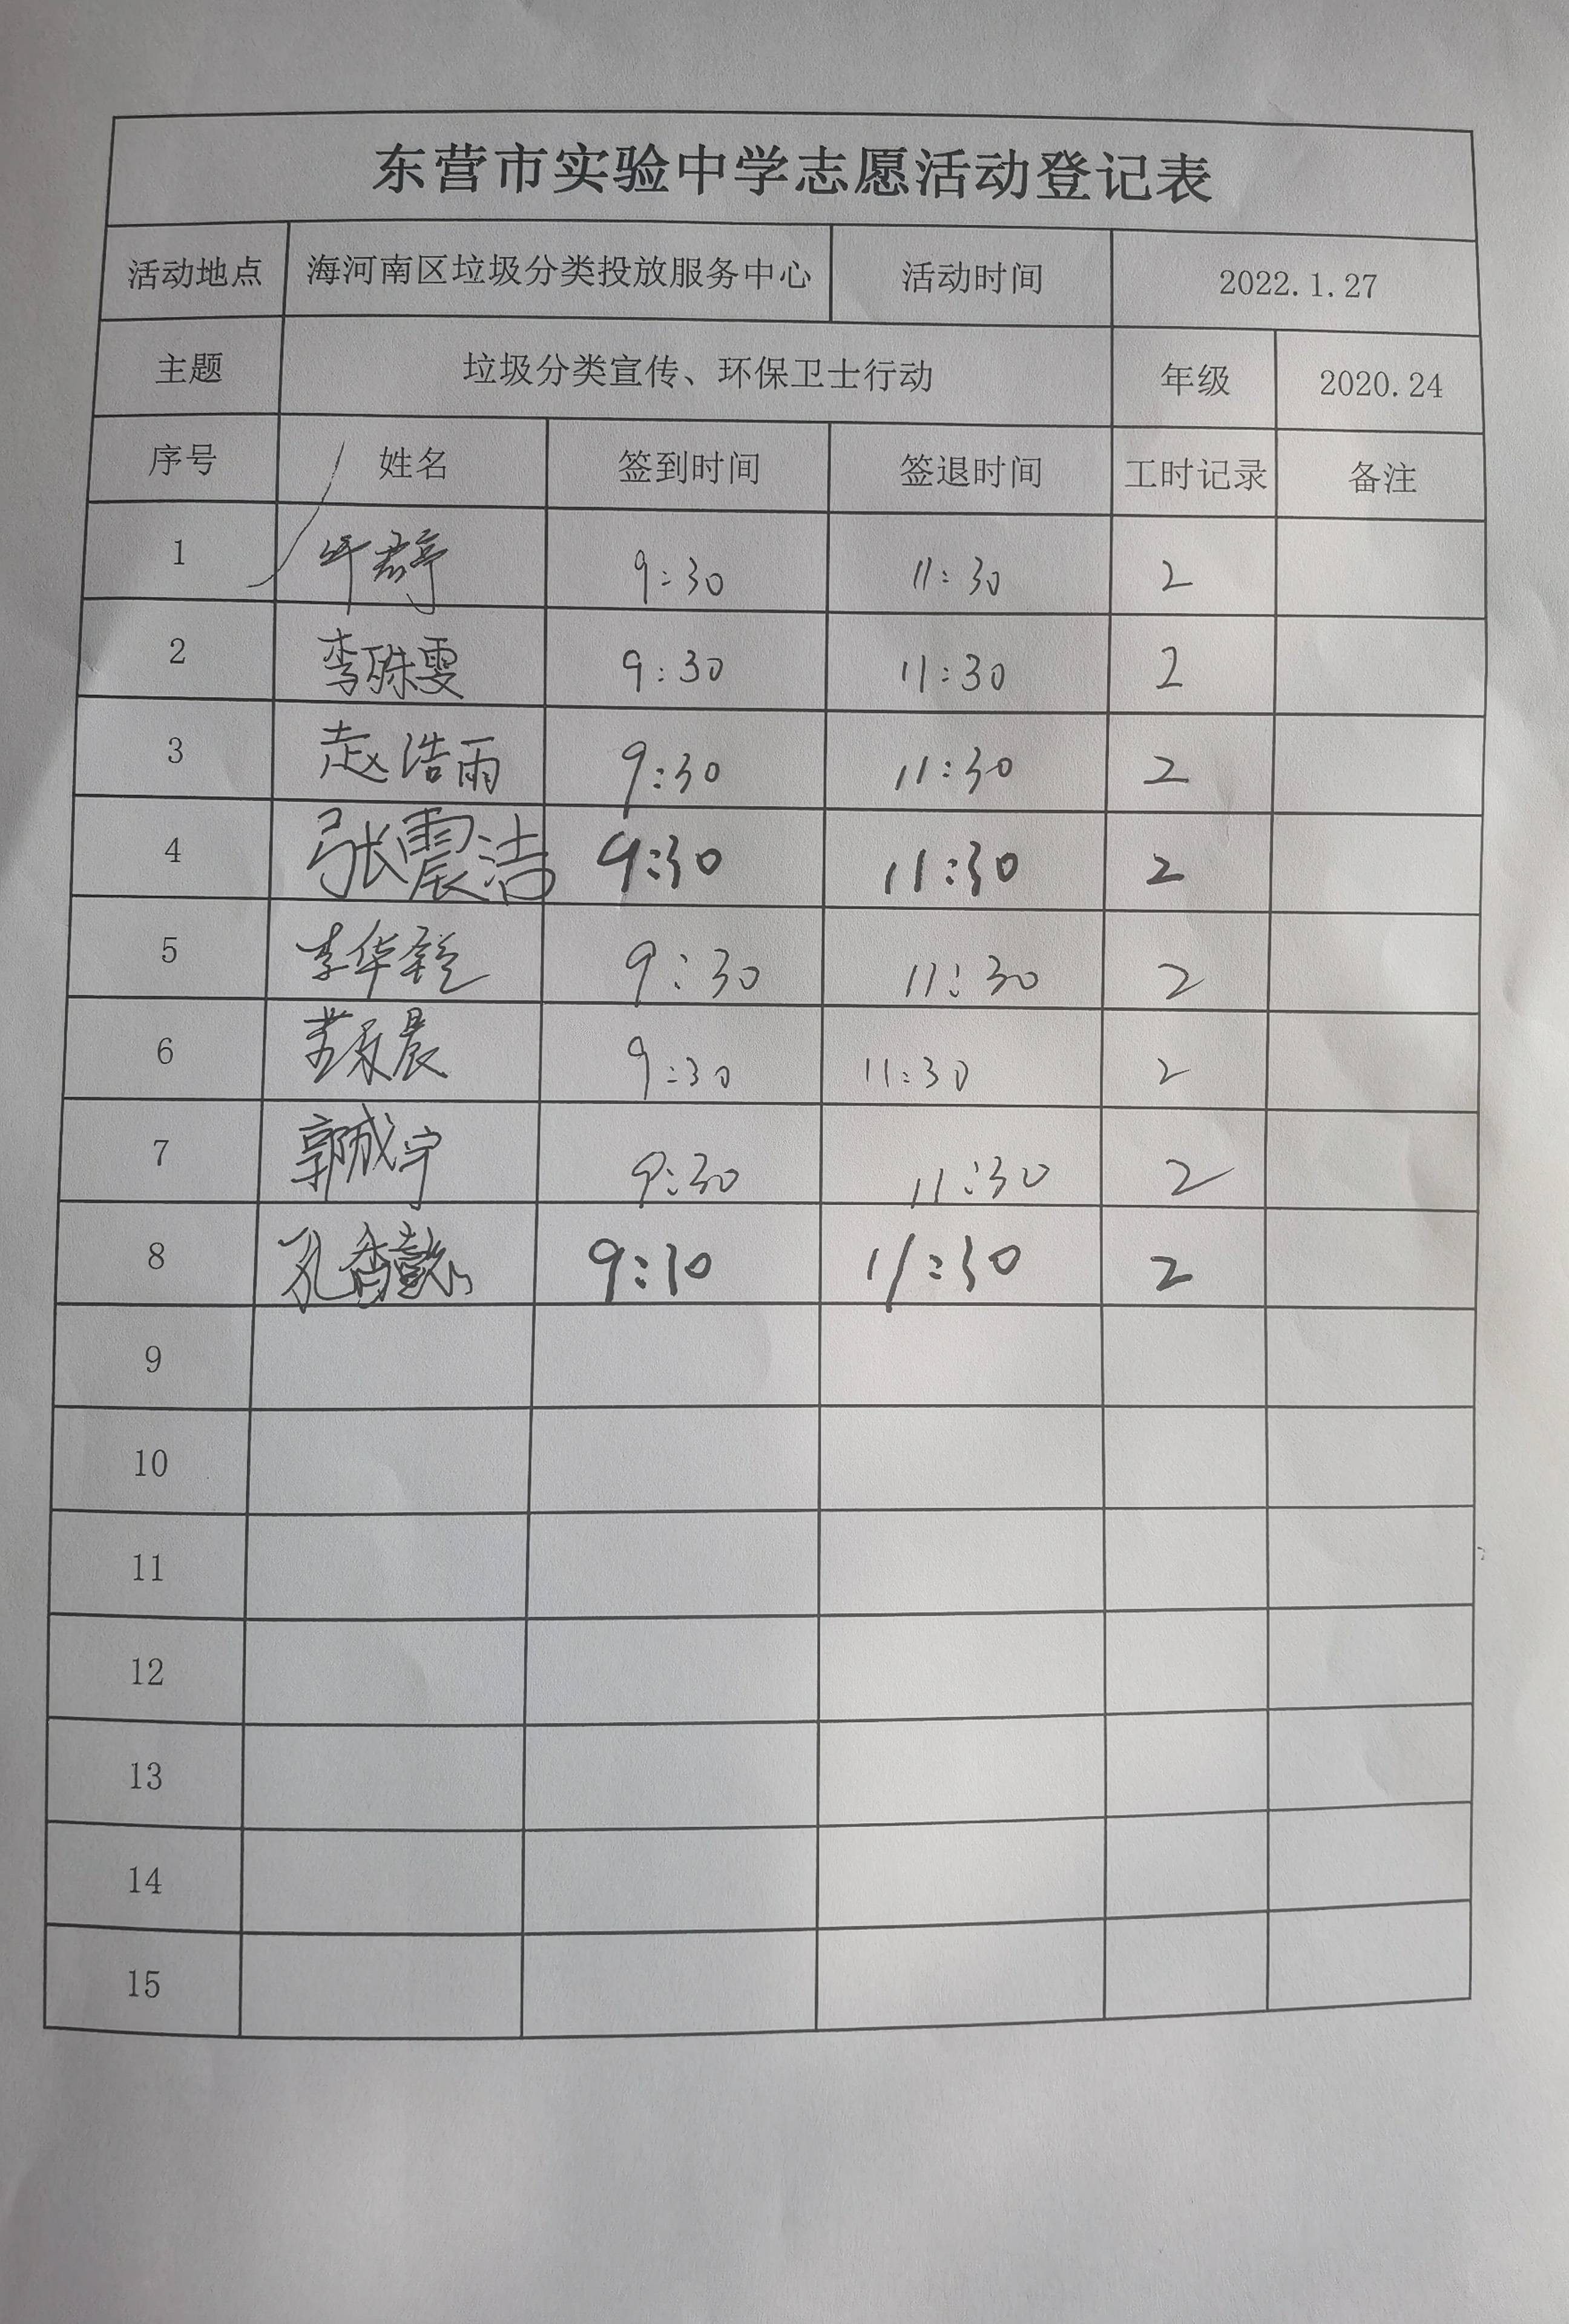 东营市实验中学志愿活动登记表
活动地点 海河南区垃圾分类投放服务中心 活动时间 2022.1.27
主题 垃圾分类宣传、环保卫士行动 年级 2020.24
序号 姓名 签到时间 签退时间 工时记录 备注
1 9:30 11:30 2
2 李 雯 9:30 11:30 2
3 赵浩雨 9:30 11:30 2
4 张震洁 9:30 11:30 2
5 李华 9:30 11:30 2
6 晨 9:30 11:30 2
7 郭成宇 9:30 11:30 2
8 孔香懿 9:30 11:30 2
9
10
11
12
13
14
15